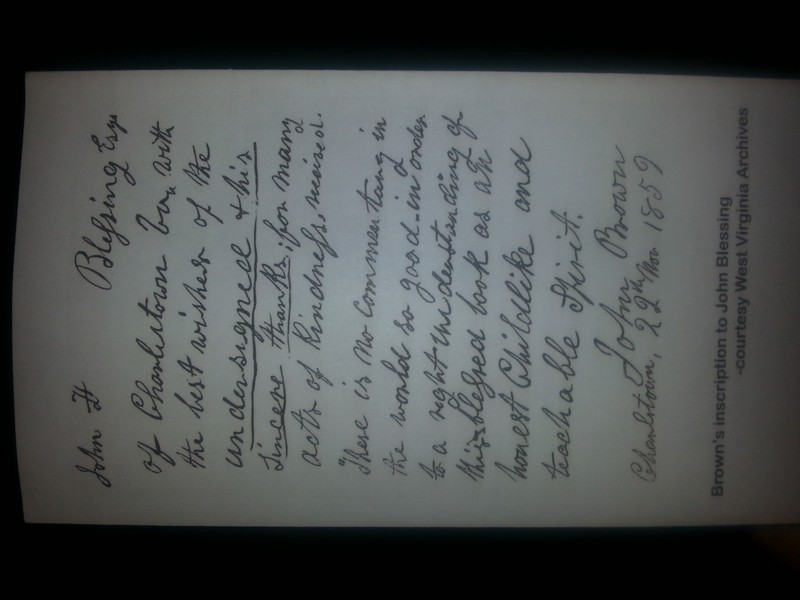 John F Blessing Esqr
of Charlestown Va, with
the best wishes of the
undersigned & his
sincere thanks, for many
acts of kindness, received.
There is no commentary in
the world so good in order
to a right understanding of
this blessed book as an
honest Childlike and
teachable Spirit.
John Brown
Charlestown, 22nd Nov 1859
Brown's inscription to John Blessing
-courtesy West Virginia Archives